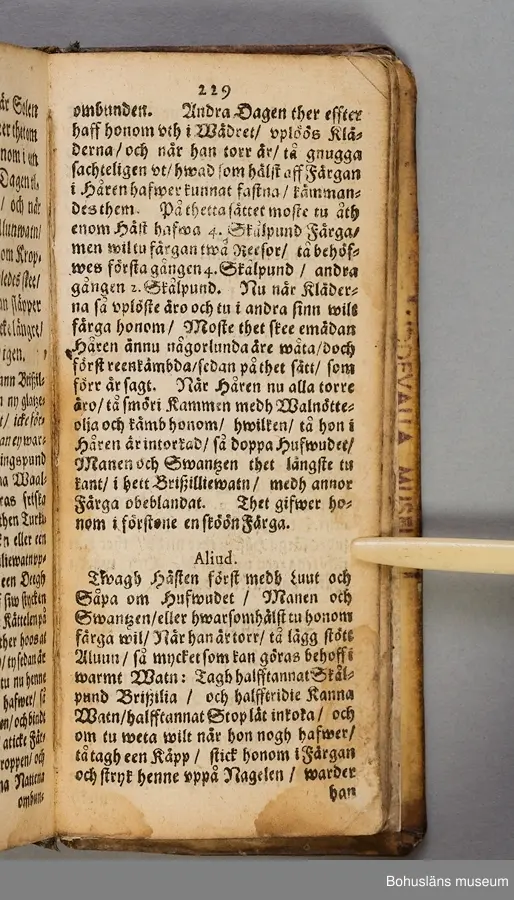 229
ombunden. Andra Dagen ther effter
haff honom vth i Wädret/ vplöös Klä-
derna/och när han torr är/ tå gnugga
sachteligen vt/hwad som hälst aff Färgan
i Håren hafwer kunnat fastna/ kämman-
des them. På thetta sättet moste tu åth
enom Häst hafwa 4. Skålpund Färga/
men wil tu färgan twå Reesor/ tå behöf-
wes första gången 4. Skålpund / andra
gången 2. Skålpund. Nu när Kläder-
na så vplöste äro och tu i andra sinn wilt
färga honom/ Moste thet skee emädan
Håren ännu någorlunda äre wåta/doch
först reenkämbda/sedan på thet sätt/ som
förr är sagt. När Håren nu alla torre
äro/ tå smöri Kammen medh Walnötte-
olja och kämb honom/ hwilken/ tå hon i
Håren är intorkad/ så doppa Hufwudet/
Manen och Swantzen thet längste tu
kant/ i hett Brißilliewatn/ medh annor
Färga obeblandat. Thet gifwer ho-
nom i förstone en sköön Färga.
Aliud.
Twagh Hästen först medh Luut och
Såpa om Hufwudet / Manen och
Swantzen/eller hwarsomhälst tu honom
färga wil/ När han är torr/ tå lägg stött
Aluun/ så mycket som kan göras behoff i
warmt Watn: Tagh halfftannat Skål-
pund Brißilia / och halfftridie Kanna
Watn/halfftannat Stop låt inkoka/ och
om tu weta wilt när hon nogh hafwer/
tå tagh een Käpp / stick honom i Färgan
och stryk henne vppå Nagelen / warder
han
DEVALLA MUSE
Bohusläns museum